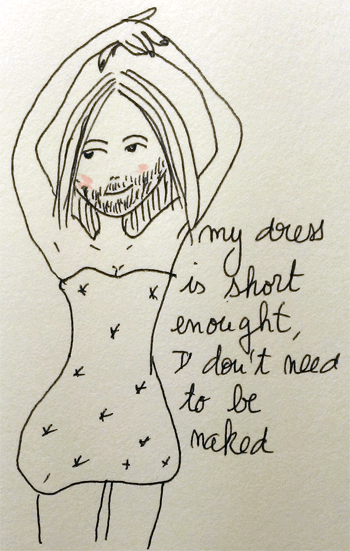 my dress
is short
enought,
I don't need
to be
naked